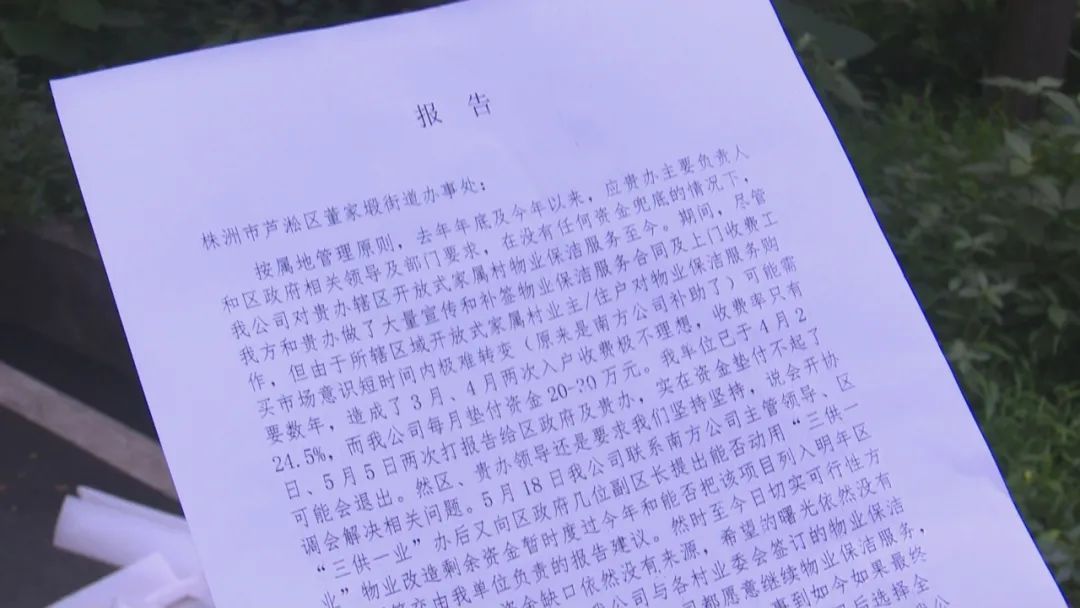 报 告
株洲市芦淞区董家塅街道办事处：
按属地管理原则，去年年底及今年以来，应贵办主要负责人
和区政府相关领导及部门要求，在没有任何资金兜底的情况下，
我公司对贵办辖区开放式家属村物业保洁服务至今。期间，尽管
我方和贵办做了大量宣传和补签物业保洁服务合同及上门收费工
作，但由于所辖区域开放式家属村业主/住户对物业保洁服务购
买市场意识短时间内极难转变（原来是南方公司补助了）可能需
要数年，造成了3月、4月两次入户收费极不理想，收费率只有
24.5%，而我公司每月垫付资金20-?0万元。我单位已于4月2
日、5月5日两次打报告给区政府及贵办，实在资金垫付不起了
可能会退出。然区、贵办领导还是要求我们坚持坚持，说会开协
调会解决相关问题。5月18日我公司联系南方公司主管领导、区
“三供一业”办后又向区政府几位副区长提出能否动用“三供一
业”物业改造剩余资金暂时度过今年和能否把该项目列入明年区
交由我单位负责的报告建议。然时至今日切实可行性方
资金缺口依然没有来源，希望的曙光依然没有
公司与各村业委会签订的物业保洁
司都愿意继续物业保洁服务，
事到如今如果最终
后选择全